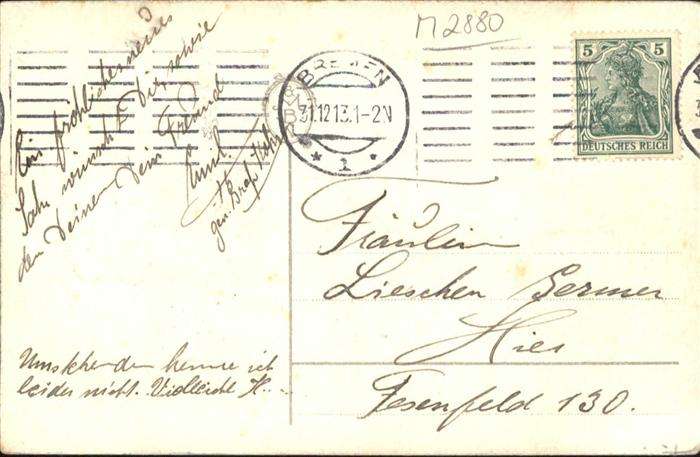 M2880
BREMEN
31.12.13.1-2N
1
5 5
DEUTSCHES REICH
Ein fröhliches neues
Jahr wünscht Dir sowie
den Deinen Dein Freund
Emil
gen.
Fräulein
Lieschen Germer
Hier
Fesenfeld 130.
Umstehenden kenne ich
leider nicht. Vielleicht K...